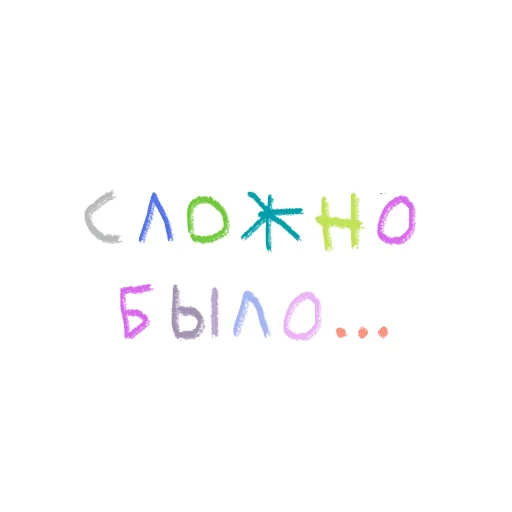 СЛОЖНО
БЫЛО...